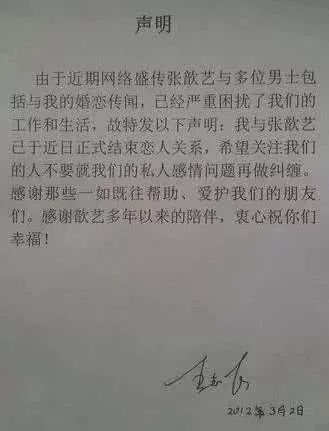 声明
由于近期网络盛传张歆艺与多位男士包
括与我的婚恋传闻，已经严重困扰了我们的
工作和生活，故特发以下声明：我与张歆艺
已于近日正式结束恋人关系，希望关注我们
的人不要就我们的私人感情问题再做纠缠。
感谢那些一如既往帮助、爱护我们的朋友
们。感谢歆艺多年以来的陪伴，衷心祝你们
幸福！
2012年3月2日